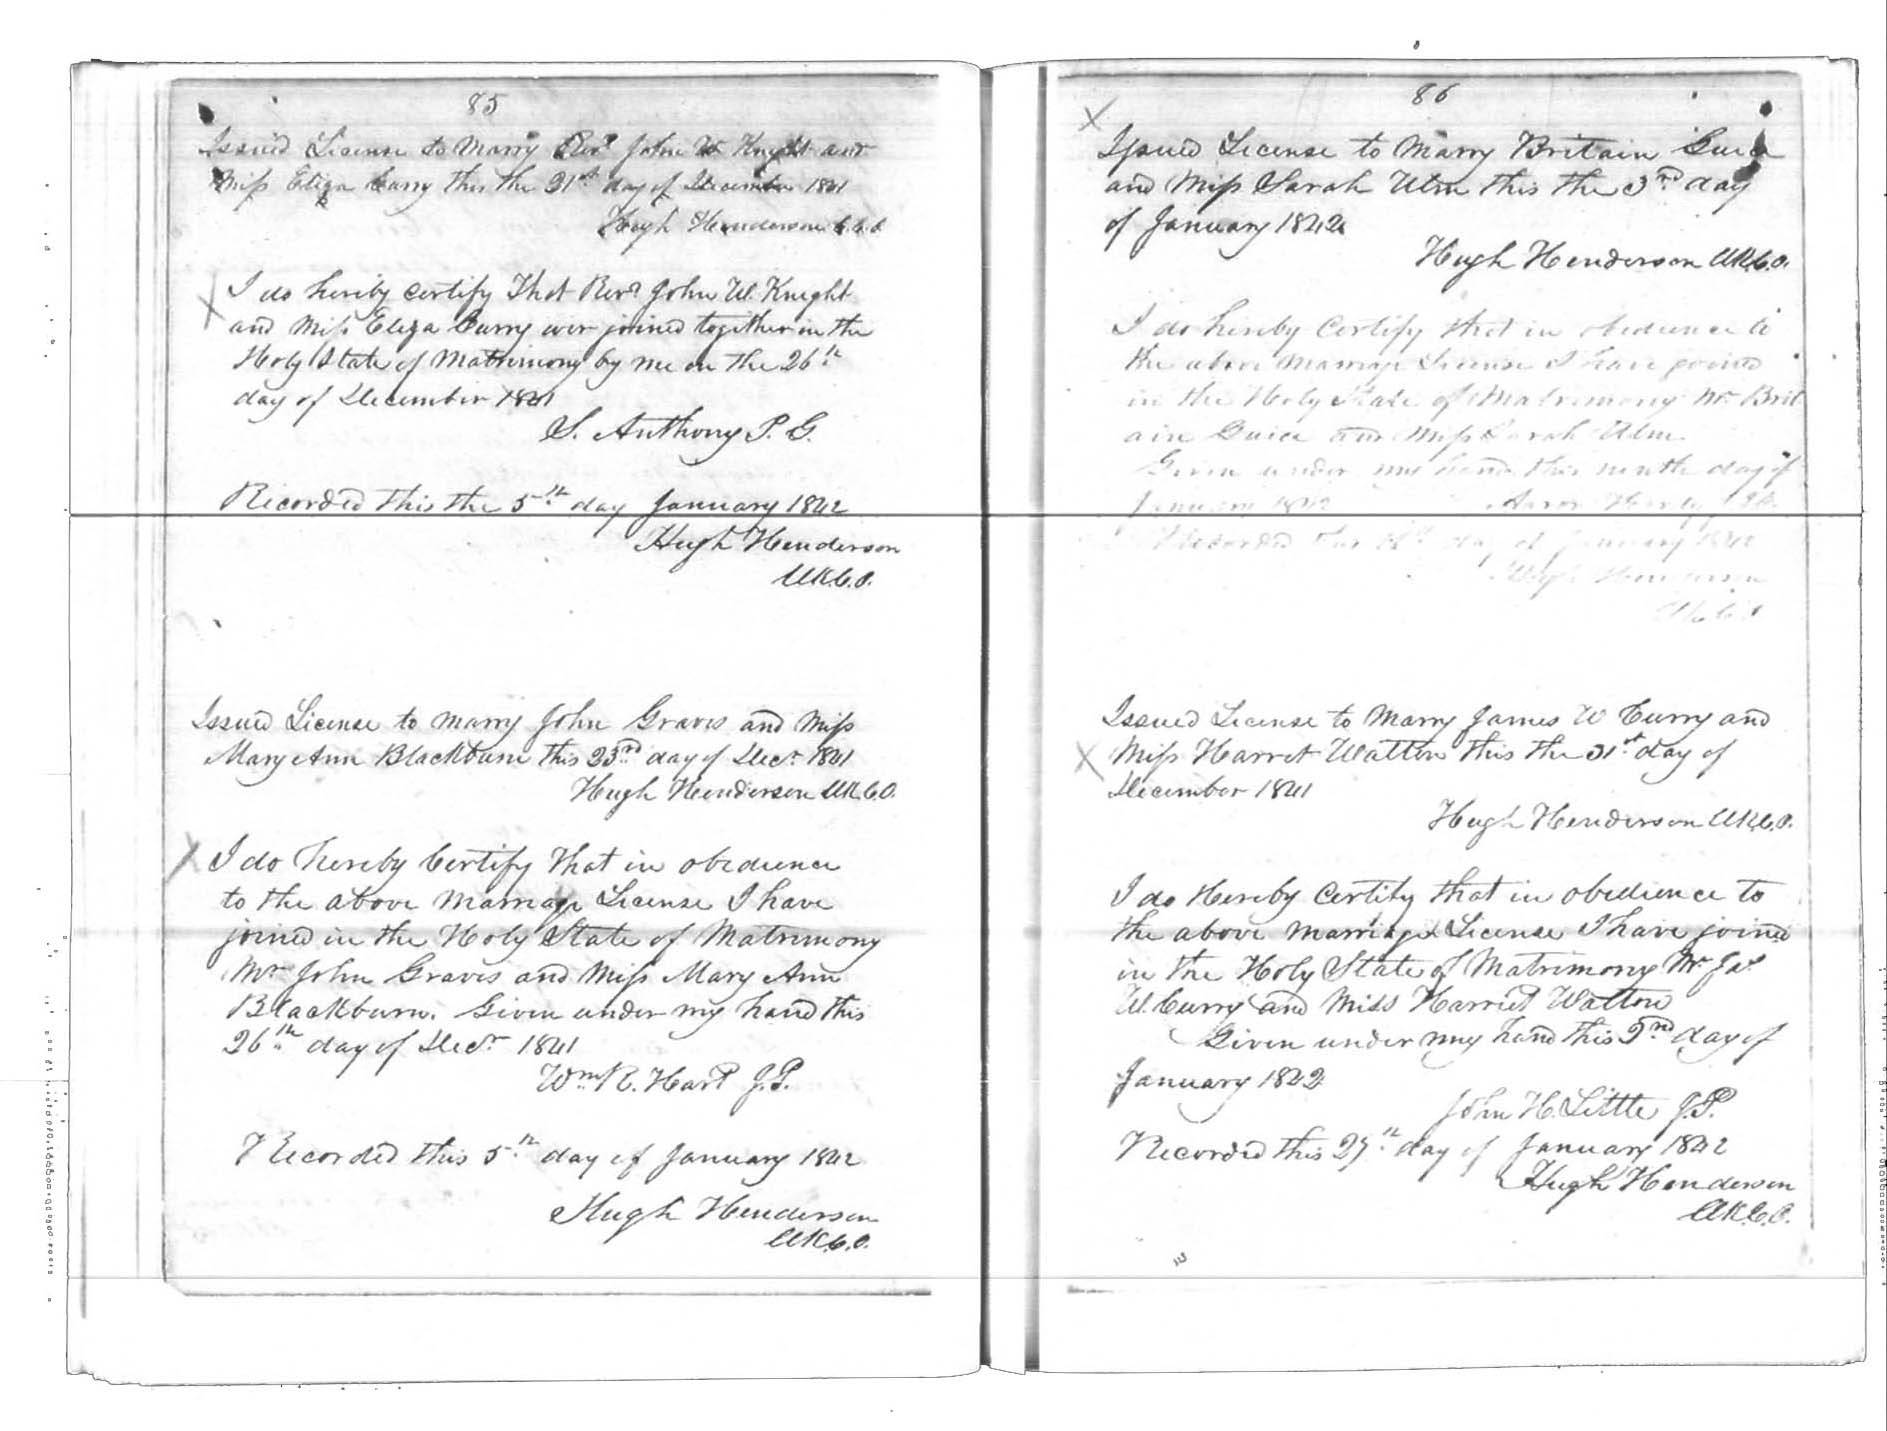 85
Issued License to Marry Revd John W Knight and
Miss Eliza Curry this the 21st day of December 1841
Hugh Henderson C.C.O.
I do hereby certify that Revd John W. Knight
and Miss Eliza Curry wer joined together in the
Holy State of Matrimony by me on the 26th
day of December 1841
S. Anthony P. G.
Recorded this the 5th day January 1842
Hugh Henderson
Clk C.O.
Issued License to marry John Graves and Miss
Mary Ann Blackburn this 23rd day of Decr 1841
Hugh Henderson Clk C.O.
I do hereby Certify that in obedience
to the above Marriage License I have
joined in the Holy State of Matrimony
Mr John Graves and Miss Mary Ann
Blackburn. Given under my hand this
26th day of Decr 1841
Wm R. Hart J.P.
Recorded this 5th day of January 1842
Hugh Henderson
Clk C.O.
86
Issued License to Marry Britain Guice
and Miss Sarah Ulm this the 3rd day
of January 1842
Hugh Henderson Clk C.O.
I do hereby Certify that in obedience to
the above marriage License I have joined
in the Holy State of Matrimony Mr Brit
ain Guice and Miss Sarah Ulm
Given under my hand this ninth day of
January 1842 Aaron
Recorded this day of January 1842
Hugh Henderson
Clk C.O.
Issued License to Marry James W Curry and
Miss Harret Watton this the 31st day of
December 1841
Hugh Henderson Clk C.O.
I do Hereby Certify that in obedience to
the above marriage License I have joined
in the Holy State of Matrimony Mr Jas
W. Curry and Miss Harriet Watton
Given under my hand this 2nd day of
January 1842
John H. Little J.P.
Recorded this 27th day of January 1842
Hugh Henderson
Clk C.O.